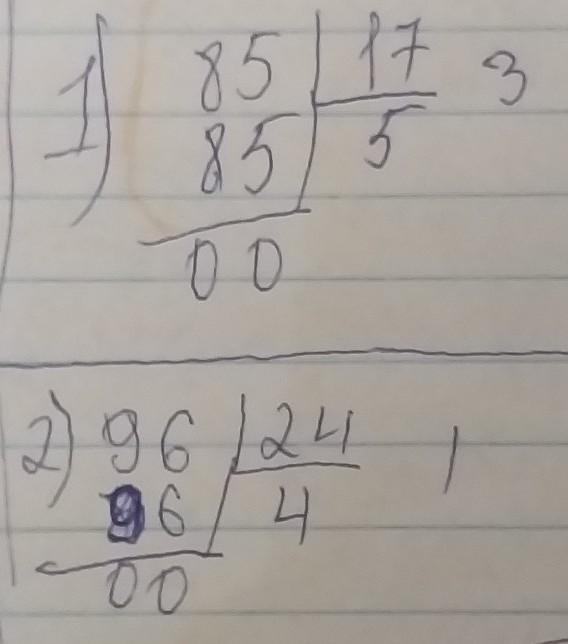 1) 85 17 3
85 5
00
2) 96 24 1
96 4
00